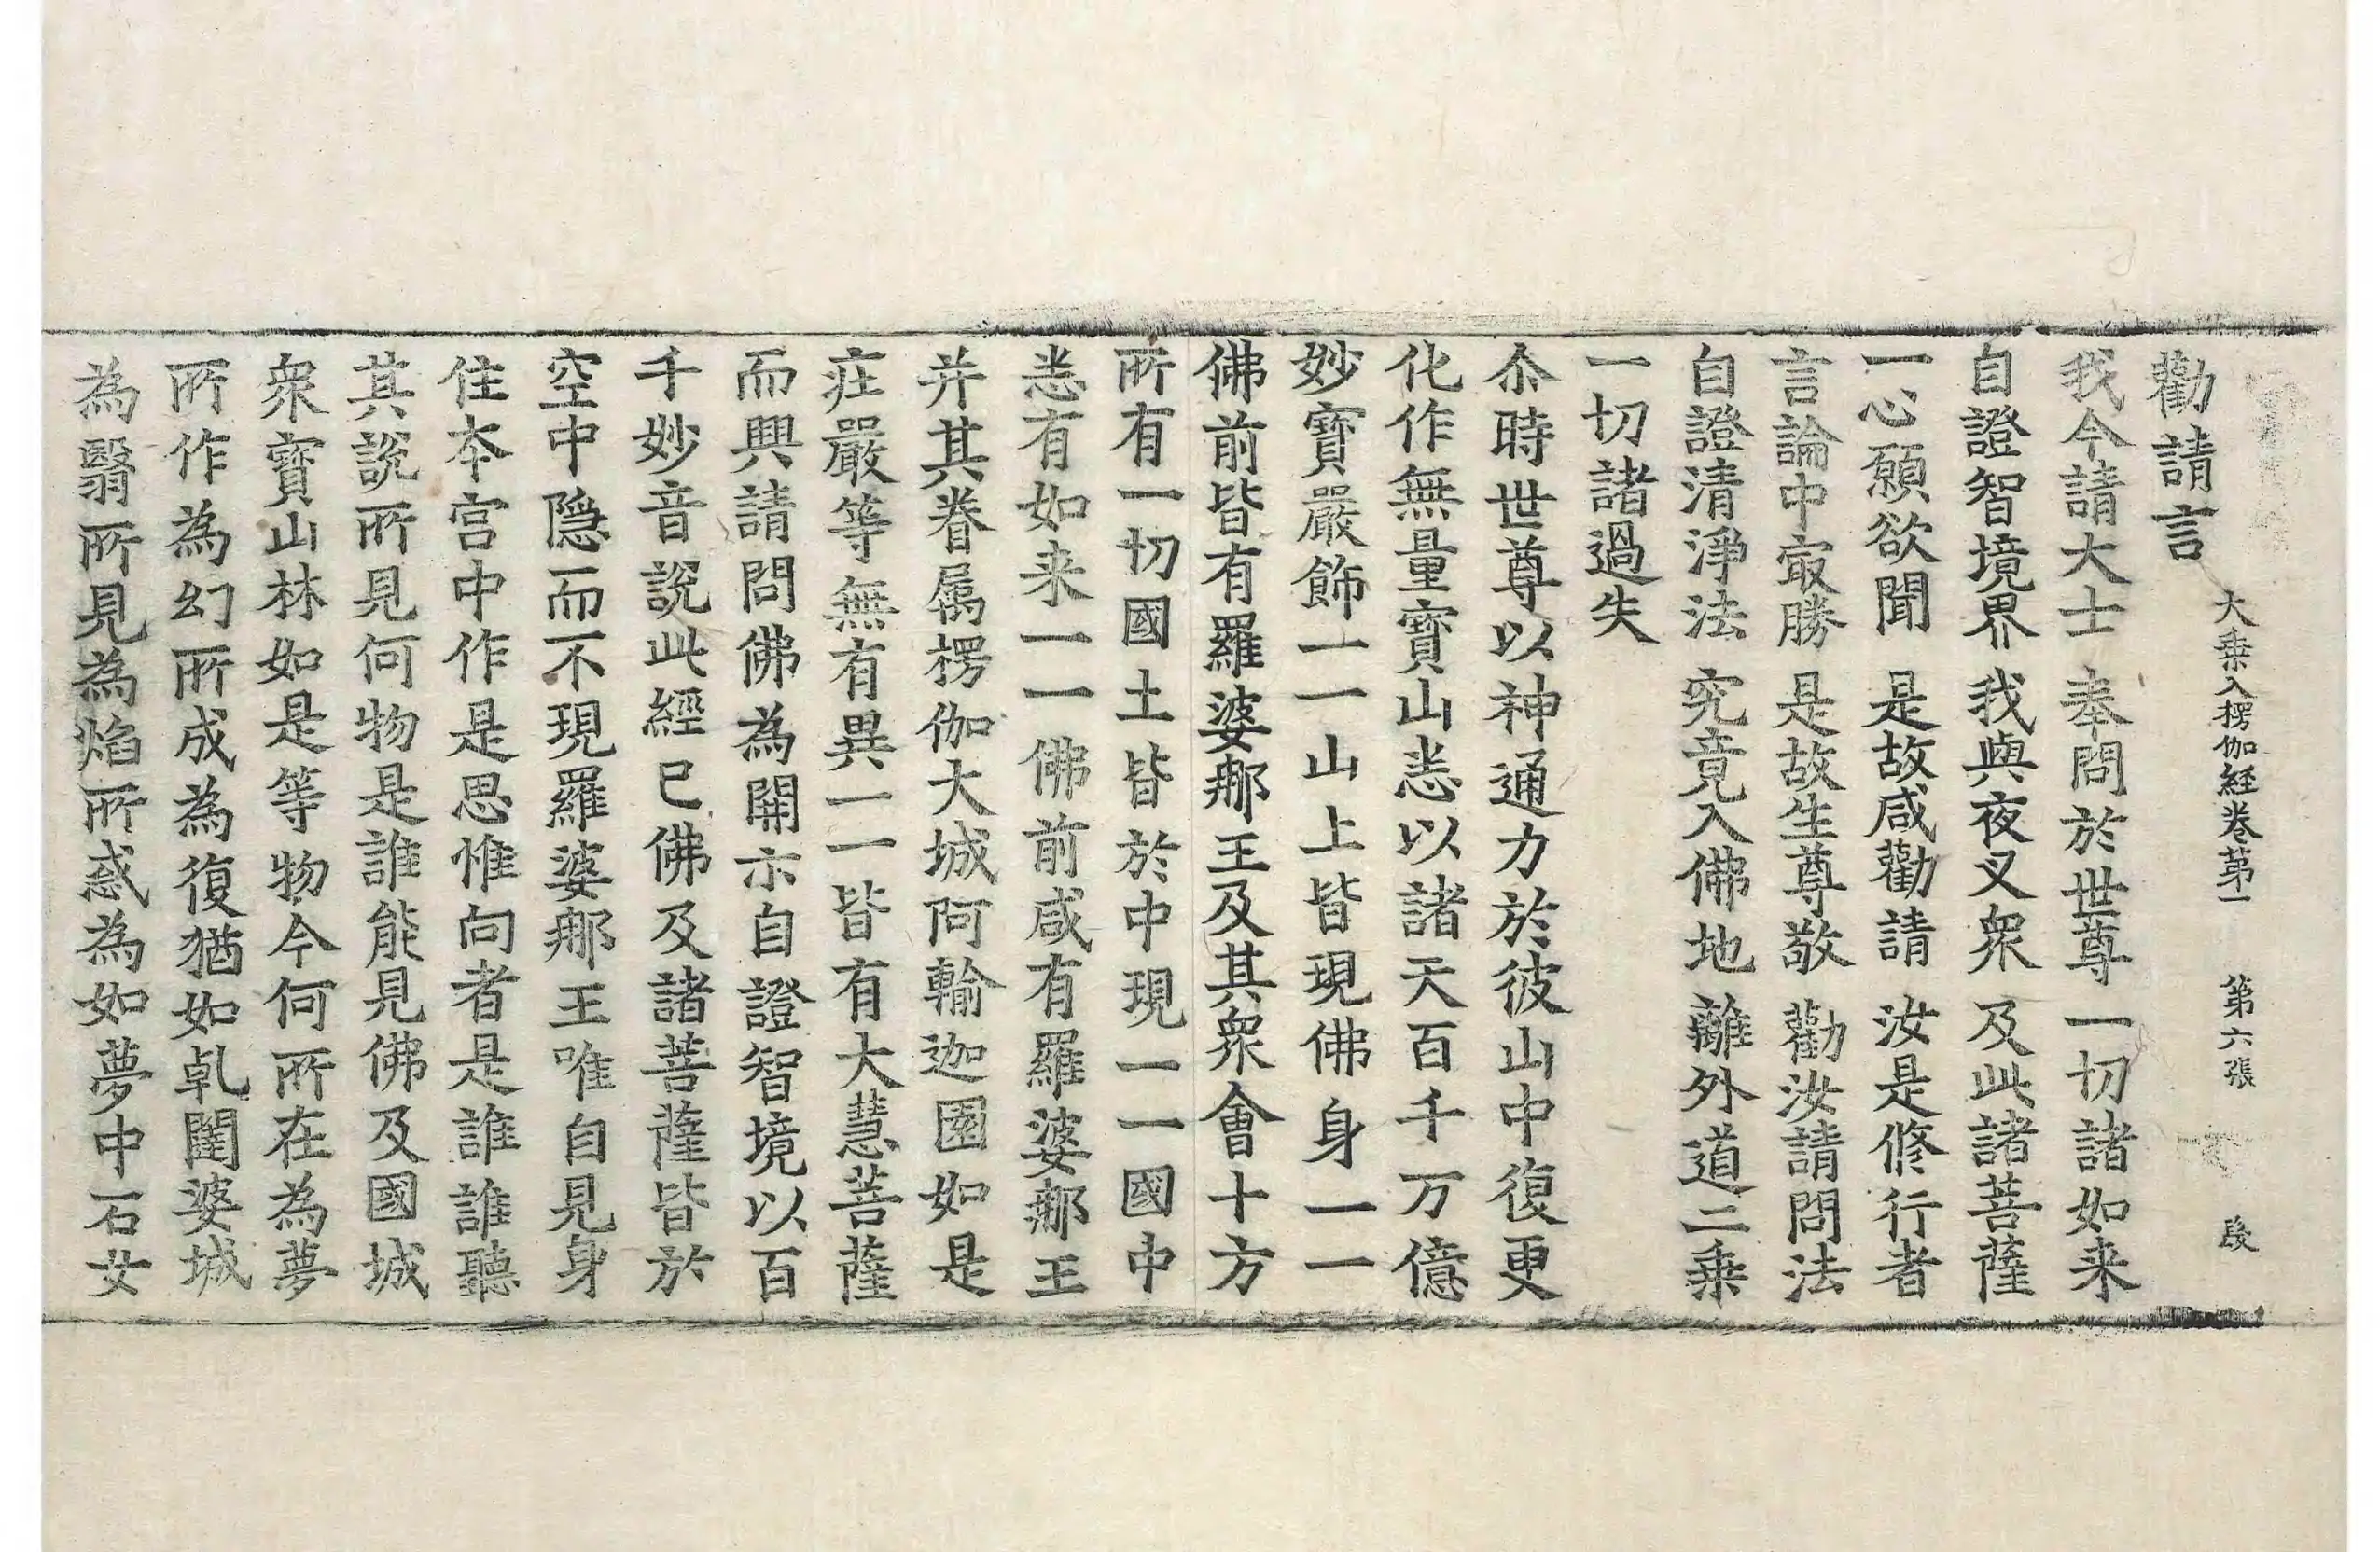 大乗入楞伽経卷第一 第六張 㱾
勸請言
我今請大士 奉問於世尊 一切諸如来
自證智境界 我與夜叉衆 及此諸菩薩
一心願欲聞 是故咸勸請 汝是修行者
言論中㝡勝 是故生尊敬 勸汝請問法
自證清淨法 究竟入佛地 離外道二乗
一切諸過失
尒時世尊以神通力於彼山中復更
化作無量寶山悉以諸天百千万億
妙寶嚴飾一一山上皆現佛身一一
佛前皆有羅婆那王及其衆會十方
所有一切國土皆於中現一一國中
悉有如来一一佛前咸有羅婆那王
并其眷属楞伽大城阿輸迦園如是
莊嚴等無有異一一皆有大慧菩薩
而興請問佛為開示自證智境以百
千妙音說此經已佛及諸菩薩皆於
空中隱而不現羅婆那王唯自見身
住本宮中作是思惟向者是誰誰聽
其說所見何物是誰能見佛及國城
衆寶山林如是等物今何所在為夢
所作為幻所成為復猶如乹闥婆城
為翳所見為焰所惑為如夢中石女